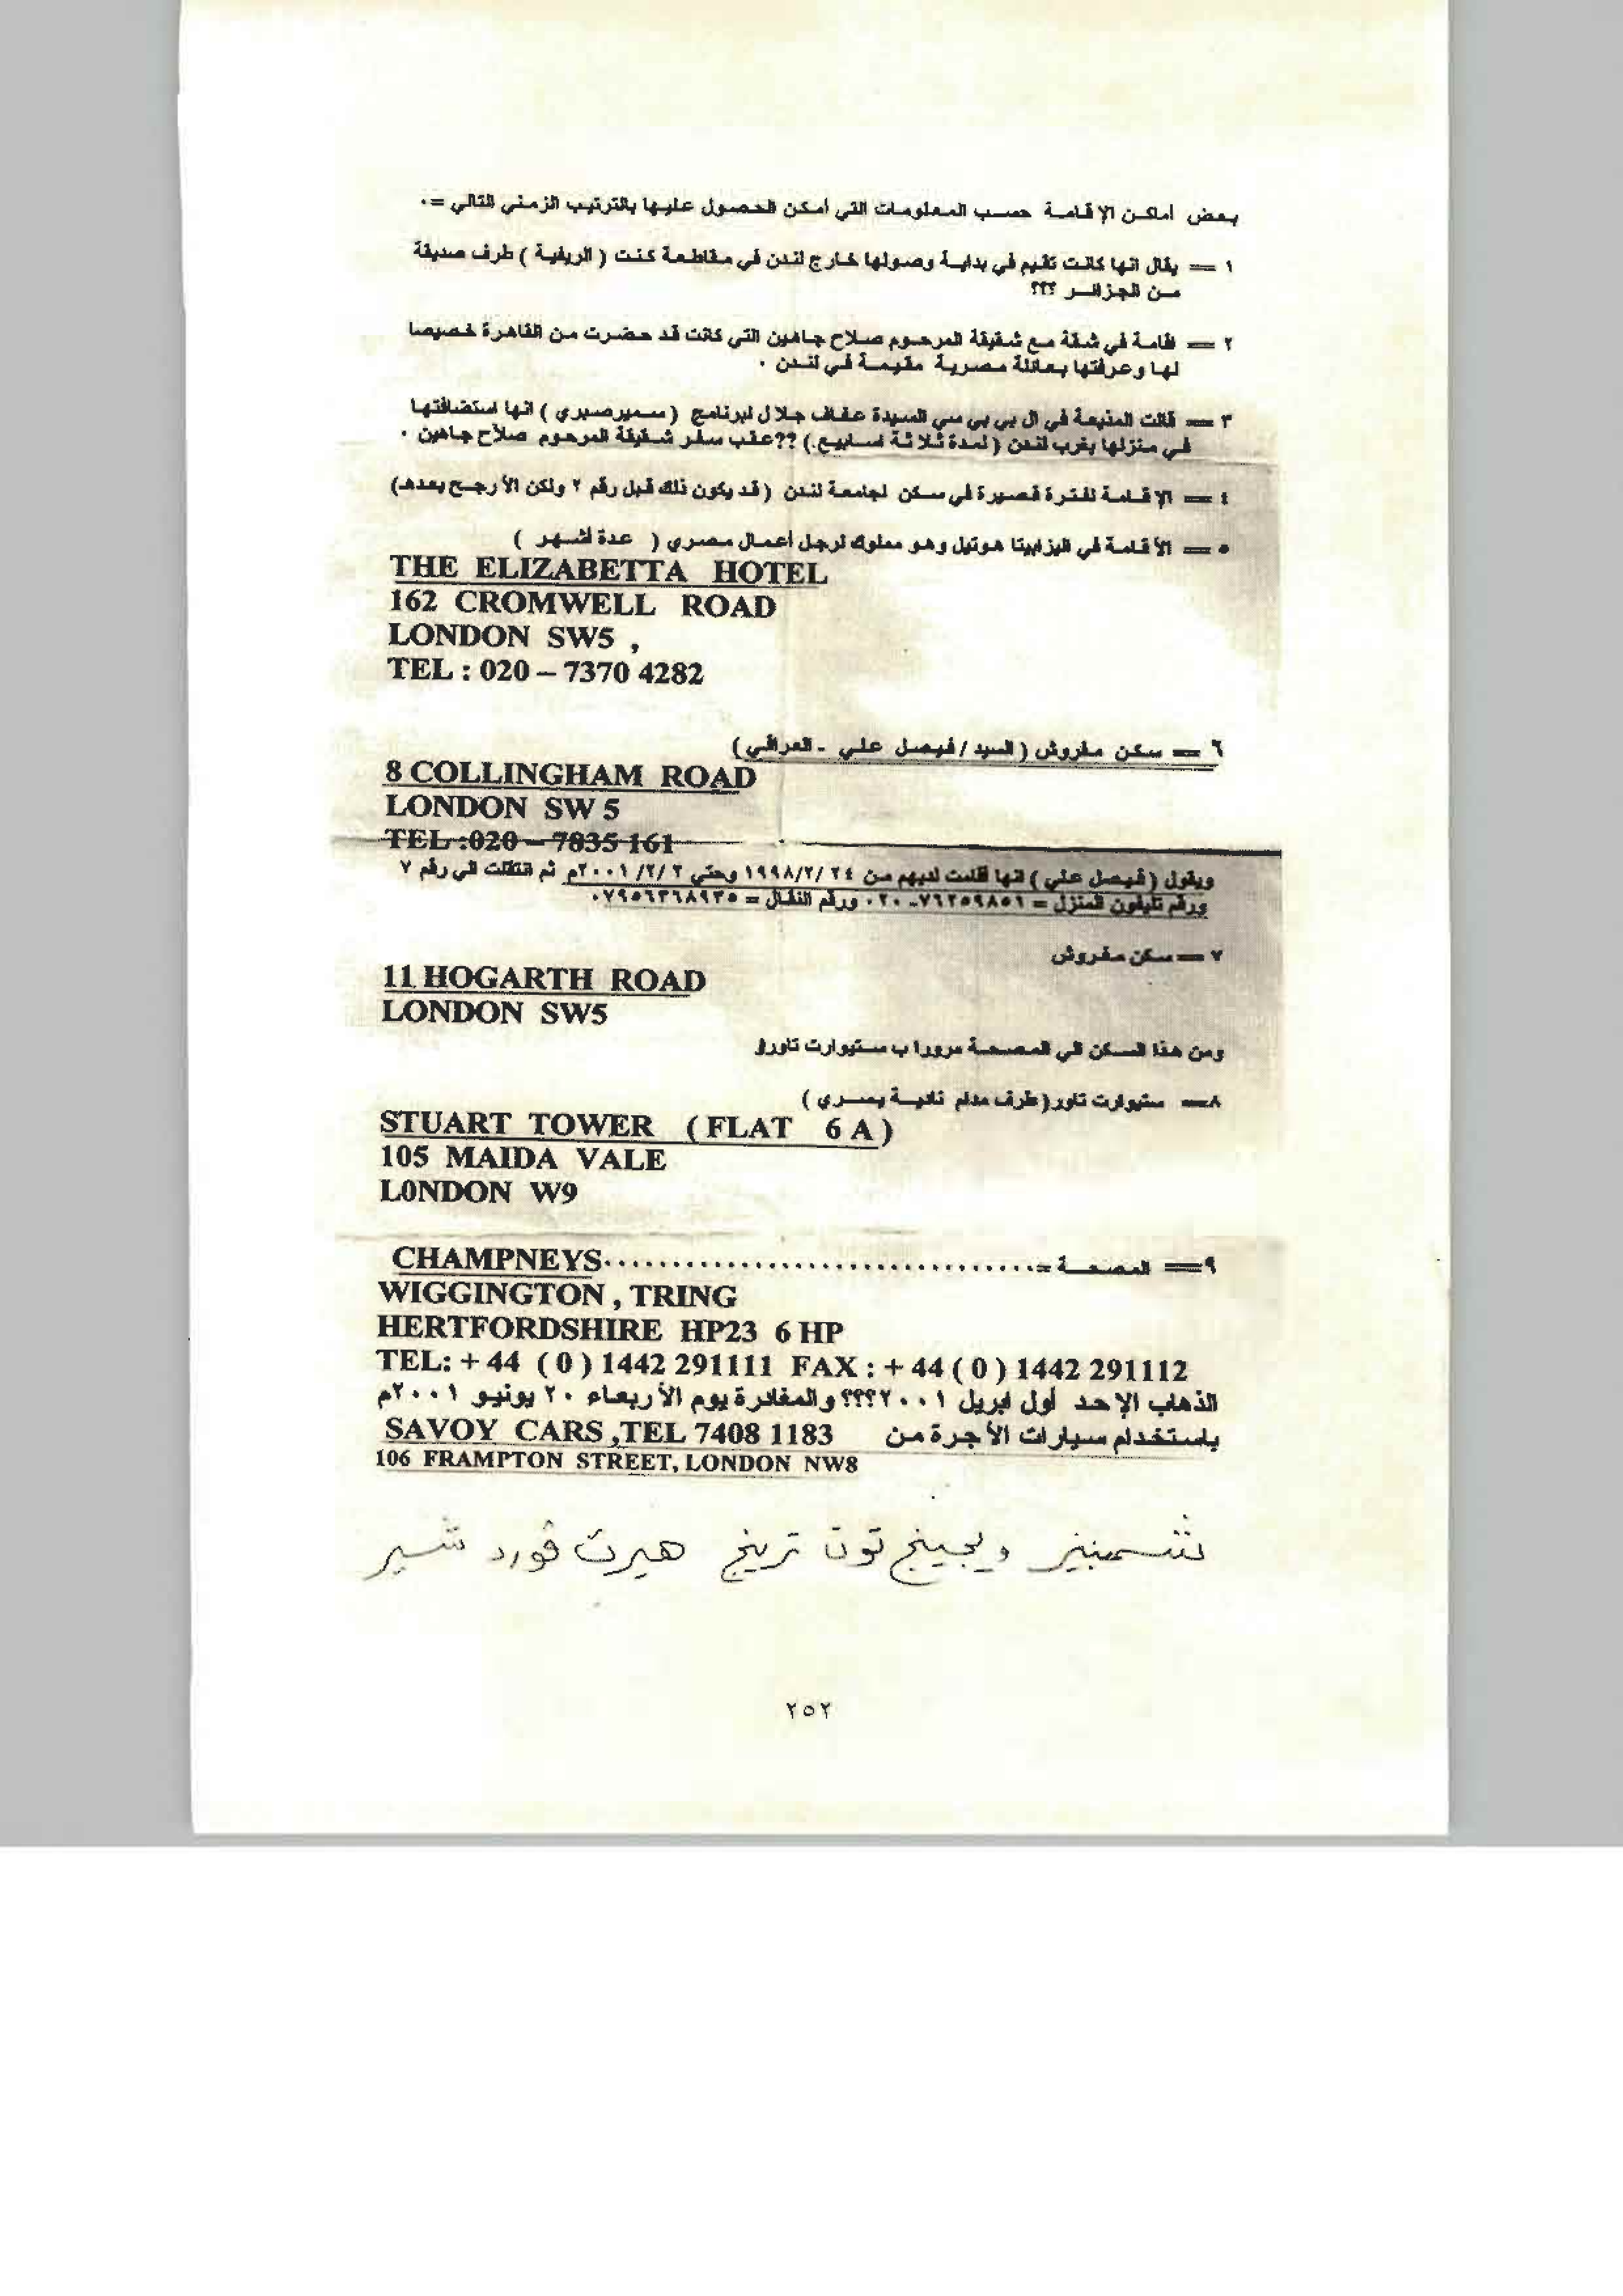 بعض أماكن الإقامة حسب المعلومات التي أمكن الحصول عليها بالترتيب الزمني التالي =٠
١ == يقال انها كانت تقيم في بداية وصولها خارج لندن في مقاطعة كنت ( الريفية ) طرف صديقة
من الجزائر ؟؟؟
٢ == إقامة في شقة مع شقيقة المرحوم صلاح جاهين التي كانت قد حضرت من القاهرة خصيصا
لها وعرفتها بعائلة مصرية مقيمة في لندن .
٣ == قالت المذيعة في ال بي بي سي السيدة عفاف جلال لبرنامج ( سمير صبري ) انها استضافتها
في منزلها بغرب لندن ( لمدة ثلاثة اسابيع ) ؟؟ عقب سفر شقيقة المرحوم صلاح جاهين .
٤ == الإقامة لفترة قصيرة في سكن لجامعة لندن ( قد يكون ذلك قبل رقم ٢ ولكن الأرجح بعدها)
٥ == الأقامة في اليزابيتا هوتيل وهو مملوك لرجل أعمال مصري ( عدة أشهر )
THE ELIZABETTA HOTEL
162 CROMWELL ROAD
LONDON SW5 ,
TEL : 020 – 7370 4282
٦ == سكن مفروش ( السيد / فيصل علي - العراقي )
8 COLLINGHAM ROAD
LONDON SW 5
TEL :020 – 7835 161
ويقول ( فيصل علي ) انها اقامت لديهم من ٢٤ /١٩٩٨/٢ وحتي ٢ /٢/ ٢٠٠١م ثم انتقلت الي رقم ٧
ورقم تليفون المنزل = ٧٦٢٥٩٨٥٦-٠٢٠ ورقم النقال = ٠٧٩٥٦٣٦٨٩٣٥
٧ == سكن مفروش
11 HOGARTH ROAD
LONDON SW5
ومن هذا السكن الي المصحة مرورا ب ستيوارت تاورز
٨== ستيوارت تاور( طرف مدام نادية يسري )
STUART TOWER ( FLAT 6 A )
105 MAIDA VALE
L0NDON W9
٩== المصحة =..............................CHAMPNEYS
WIGGINGTON , TRING
HERTFORDSHIRE HP23 6 HP
TEL: + 44 ( 0 ) 1442 291111 FAX : + 44 ( 0 ) 1442 291112
الذهاب الإحد أول ابريل ٢٠٠١؟؟؟؟ والمغادرة يوم الأربعاء ٢٠ يونيو ٢٠٠١م
باستخدام سيارات الأجرة من SAVOY CARS ,TEL 7408 1183
106 FRAMPTON STREET, LONDON NW8
تشمبنيز ويجينج تون ترينج هيرت فورد شير
٢٥٢